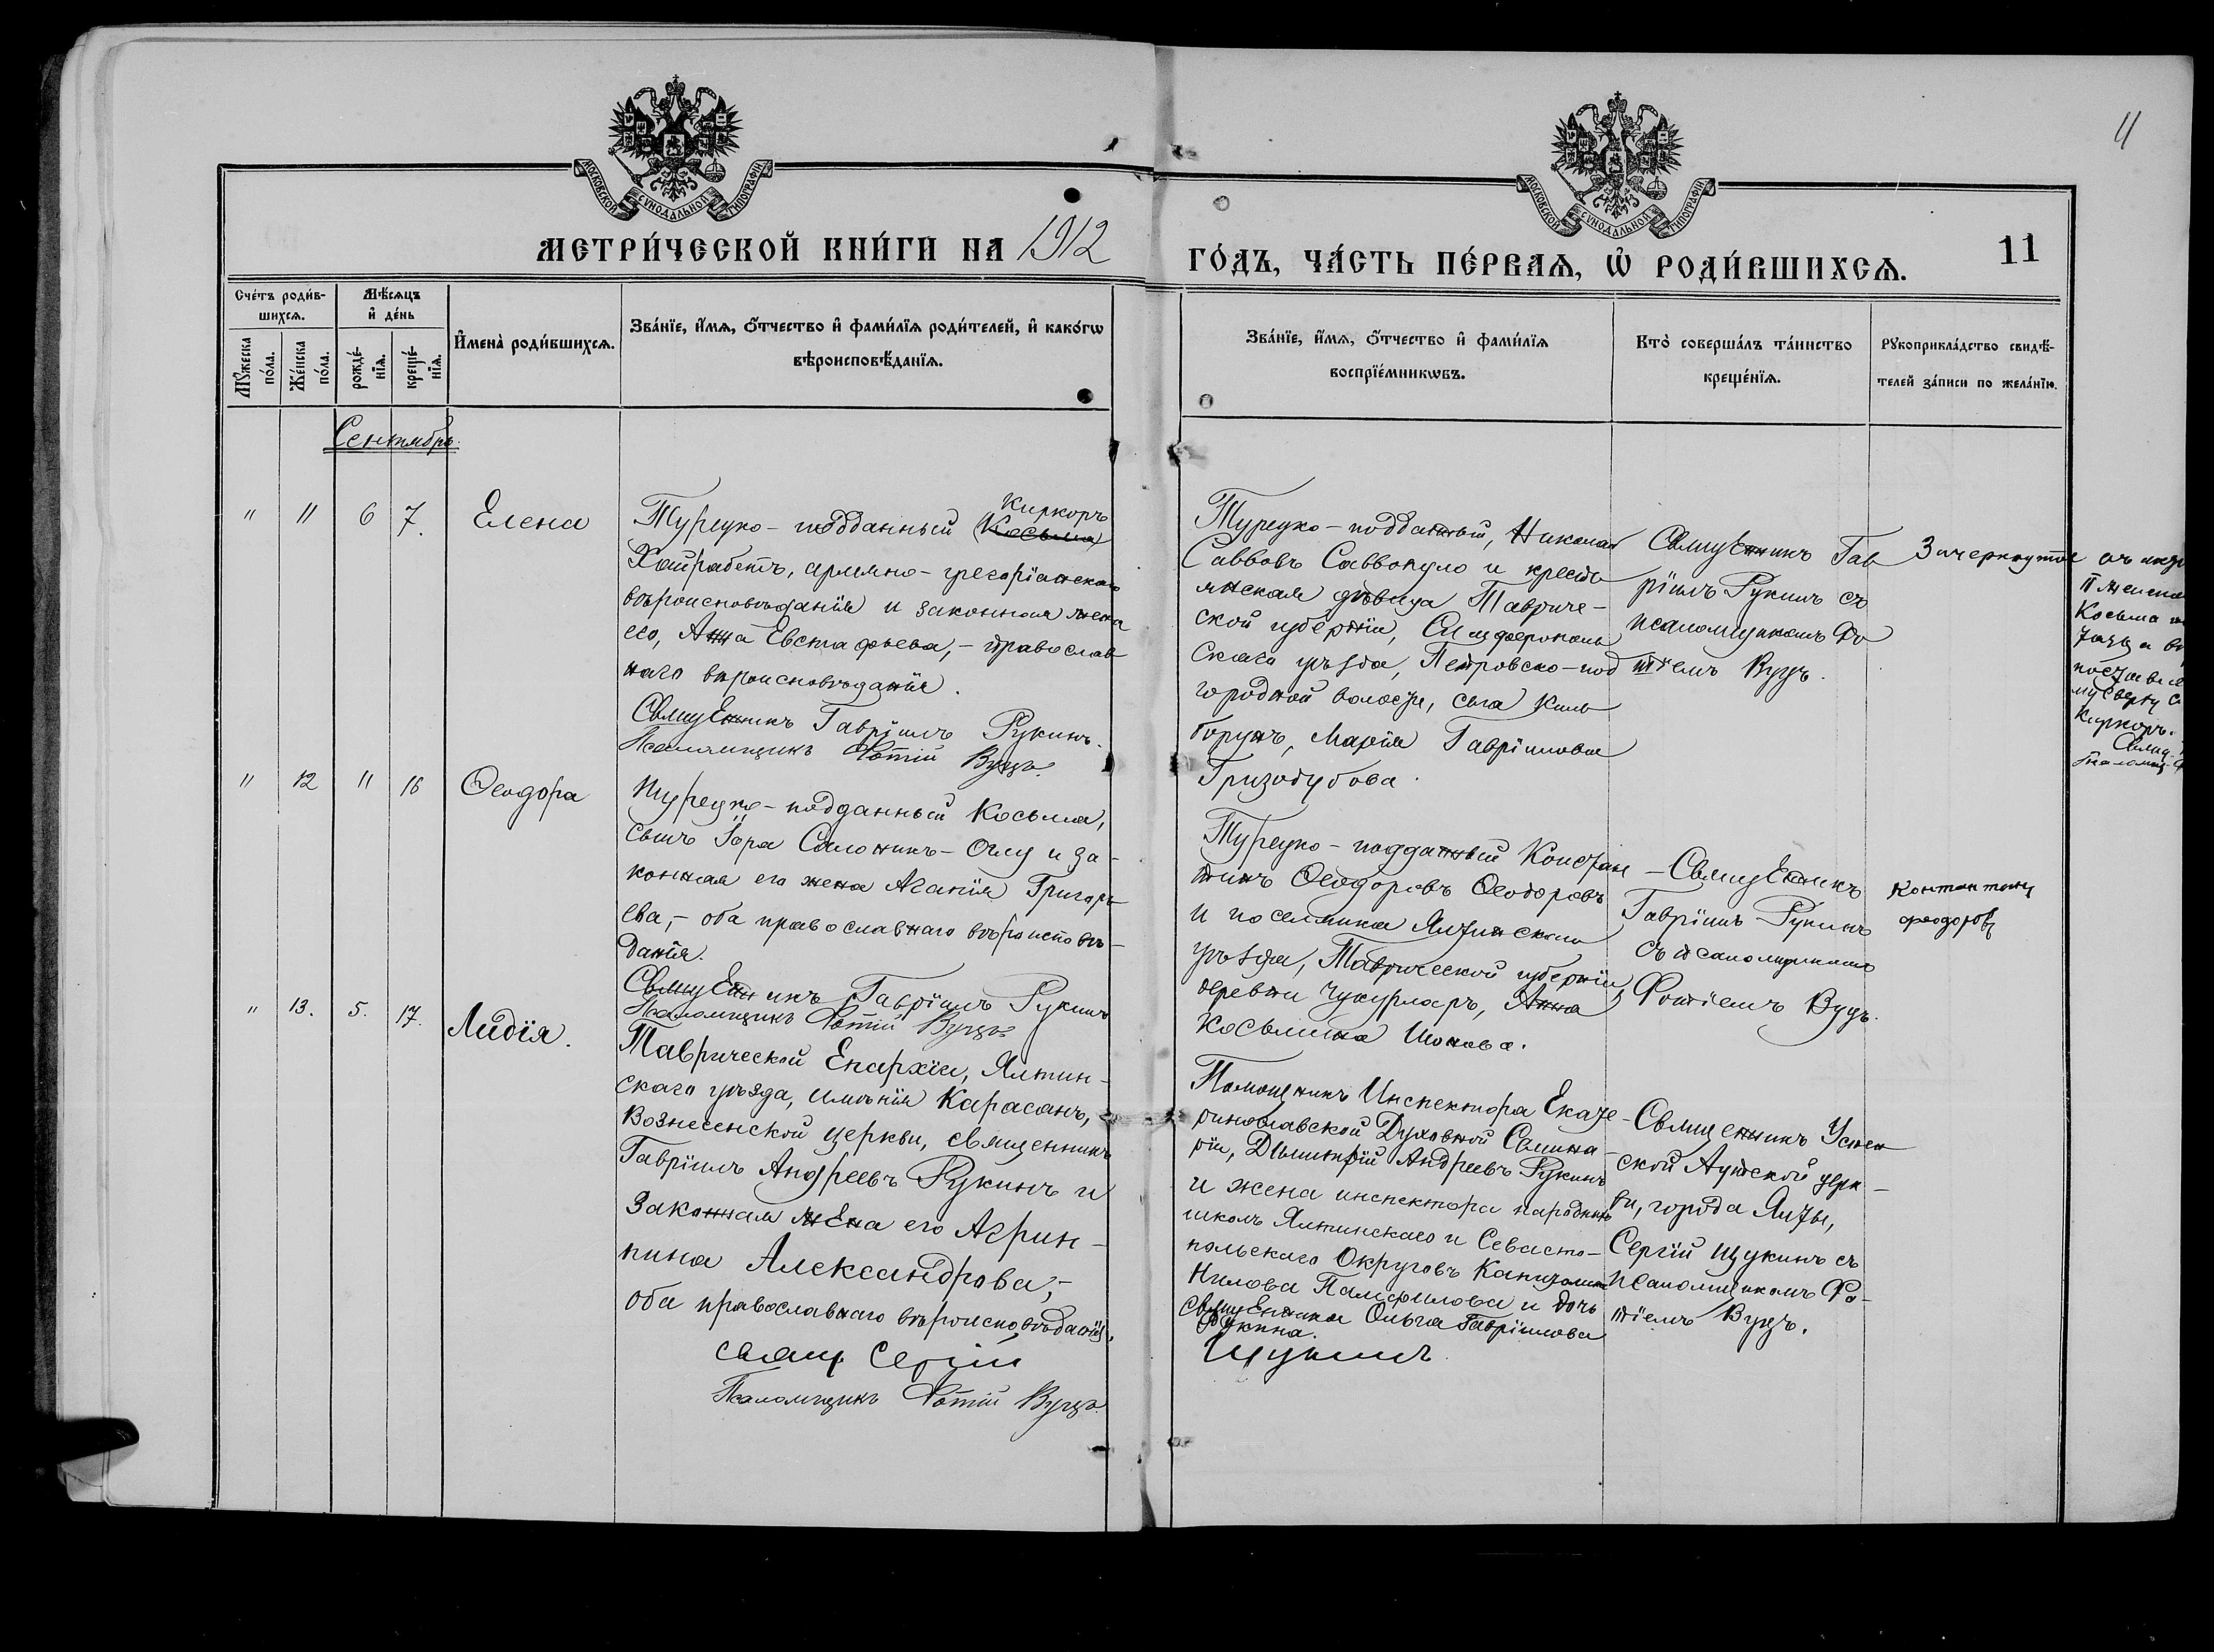 11
МОСКОВСКОЙ СѴНОДАЛЬНОЙ ТИПОГРАФІИ
МОСКОВСКОЙ СѴНОДАЛЬНОЙ ТИПОГРАФІИ
МЕТРИ́ЧЕСКОЙ КНИ́ГИ НА 1912
ГО́ДЪ, ЧА́СТЬ ПЕ́РВАѦ, Ѽ РОДИ́ВШИХСѦ.
11
Сче́тъ роди́в-
шихсѧ.
Мѣ́сѧцъ
и҆ де́нь
Мꙋ́жеска
по́ла.
Же́нска
по́ла.
рожде́-
нїѧ.
креще́-
нїѧ.
И҆мена̀ роди́вшихсѧ.
Зва́нїе, и҆́мѧ, ѻ҆́тчество и҆ фами́лїѧ роди́телей, и҆ како́гѡ
вѣроисповѣ́данїѧ.
Зва́нїе, и҆́мѧ, ѻ҆́тчество и҆ фами́лїѧ
воспрїе́мникѡвъ.
Кто̀ соверша́лъ та́инство
креще́нїѧ.
Рꙋкоприкла́дство свидѣ́-
телей за́писи по жела́нїю.
Сентябрь.
" 11 6 7. Елена
Киркоръ
Турецко-подданный (Косьма)
Хайрабетъ, армяно-грегоріанскаго
вѣроисповѣданія и законная жена
его, Анна Евстафьева, - православ
наго вѣроисповѣданія.
Священникъ Гавріилъ Рукинъ.
Псаломщикъ Фотій Вуцъ.
Турецко-подданый, Николай
Саввовъ Саввопуло и кресть
янская дѣвица Тавриче-
ской губерніи, Симферополь
скаго уѣзда, Петровско-под
городной волости, села Киль
бурунъ, Марія Гавріилова
Гризодубова.
Священникъ Гав
ріилъ Рукинъ съ
псаломщикомъ Фо
тіемъ Вуцъ.
Зачеркнутое
Косьма
Киркоръ.
" 12 11 16 Ѳеодора
Турецко-подданный Косьма,
сынъ Іора Салоникъ-Оглу и за-
конная его жена Агапія Григорь
ева, - оба православнаго вѣроисповѣ-
данія.
Священникъ Гавріилъ Рукинъ
Псаломщикъ Фотій Вуцъ
Турецко-подданый Констан
тинъ Ѳеодоровъ Ѳеодоровъ
и поселянка Ялтинскаго
уѣзда, Таврической губерніи,
деревни Чукурларъ, Анна
Косьмина Ионова.
-Священникъ
Гавріилъ Рукинъ
съ псаломщикомъ
Фотіемъ Вуцъ.
феодоровъ
" 13. 5. 17. Лидія.
Таврической Епархіи, Ялтин-
скаго уѣзда, имѣнія Карасанъ,
Вознесенской церкви, священникъ
Гавріилъ Андреевъ Рукинъ и
законная жена его Агрип-
пина Александрова, -
оба православнаго вѣроисповѣданія.
Свящ. Сергій
Псаломщикъ Фотій Вуцъ.
Помощникъ Инспектора Екате-
ринославской Духовной Семина-
ріи, Димитрій Андреевъ Рукинъ
и жена инспектора народныхъ
школъ Ялтинскаго и Севасто-
польскаго Округовъ Капитолина
Нилова Памфилова и дочь
священника Ольга Гавріилова
Рукина.
Щукинъ.
Священникъ Успен
ской Аутской церк-
ви, города Ялты,
Сергій Щукинъ съ
псаломщикомъ Фо-
тіемъ Вуцъ.